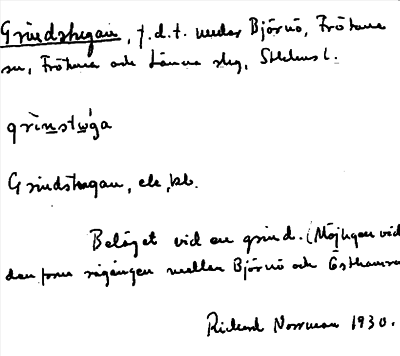 Grindstugan, f.d.t. under Björnö, Frötuna
sn, Frötuna och Länna slg, Sthlms l.
grinstwga
Grindstugan, ek, kb.
Beläget vid en grind. (Möjligen vid
den forna rågången mellan Björnö och Östhamra
Rickard Norrman 1930.